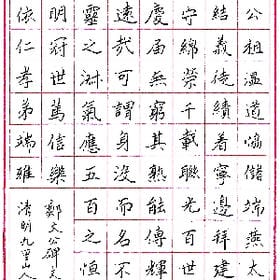 公祖溫道協儲端燕太
結義徒績著寧邊拜建
守綿榮千載聯光百世
慶屆無窮其孰能傳輝
遠哉可謂身沒而名不
靈之淋氣應五百之慎
明冠世篤信樂
依仁孝弟端雅
鄭文公碑
清明九里山人